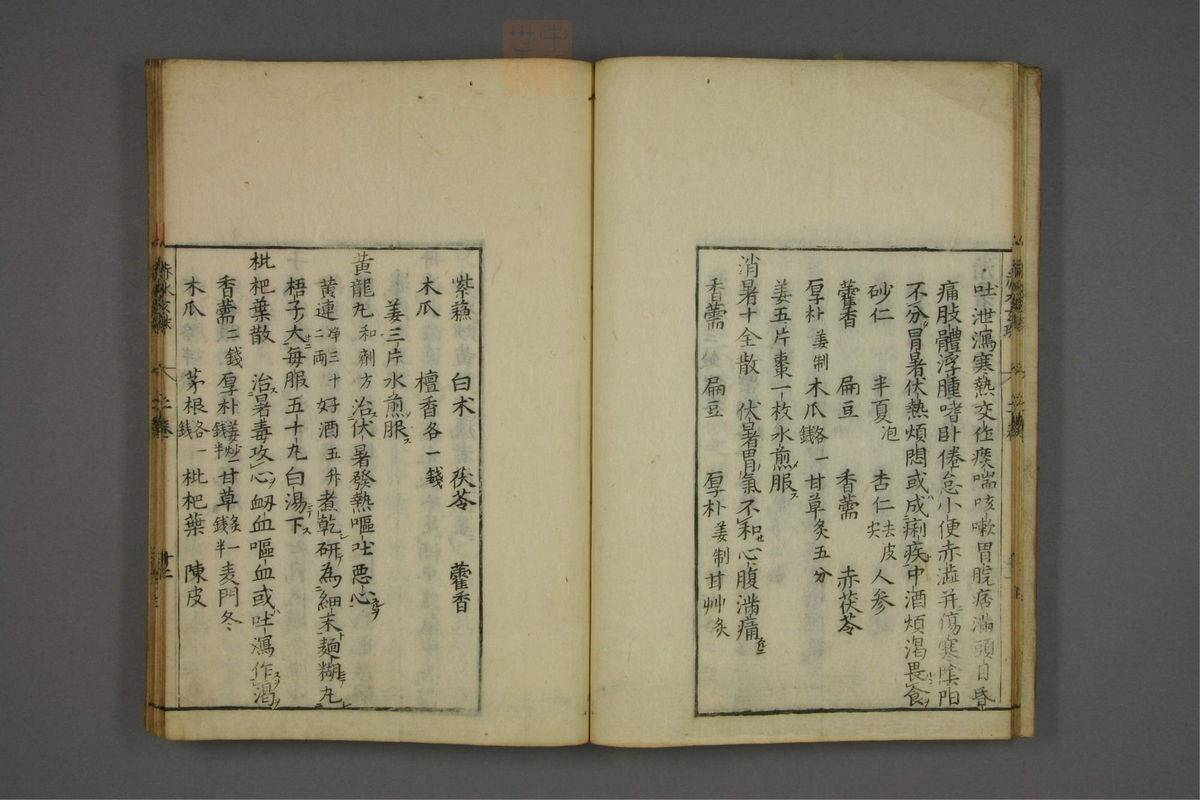 吐泄瀉寒熱交作痰喘咳嗽胃脘痞滿頭目昏
痛肢體浮腫嗜卧倦怠小便赤澁并傷寒陰陽
不分冒暑伏熱煩悶或成痢疾中酒煩渴畏食
砂仁 半夏泡 杏仁去皮尖 人参
藿香 扁豆 香薷 赤茯苓
厚朴姜制 木瓜各一錢 甘草炙五分
姜五片棗一枚水煎服
消暑十全散 伏暑胃氣不和心腹滿痛
香薷二錢 扁豆 厚朴姜制 甘艸炙
紫蘓 白术 茯苓 藿香
木瓜 檀香各一錢
姜三片水煎服
黄龍丸和劑方 治伏暑發熱嘔吐悪心
黄連淨三十二両 好酒五升 煮乾研為細末麺糊丸
梧子大毎服五十丸白湯下
枇杷葉散 治暑毒攻心衂血嘔血或吐瀉作渴
香薷二錢 厚朴姜炒一錢半 甘草炙一錢半 麦門冬
木瓜 茅根各一錢 枇杷葉 陳皮